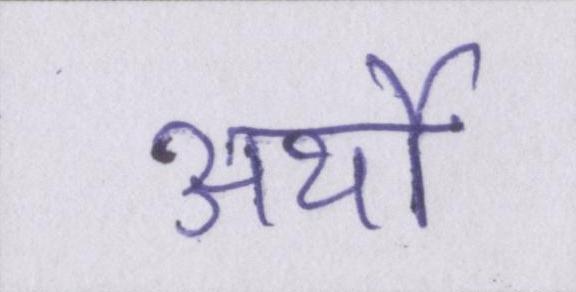 अर्थो